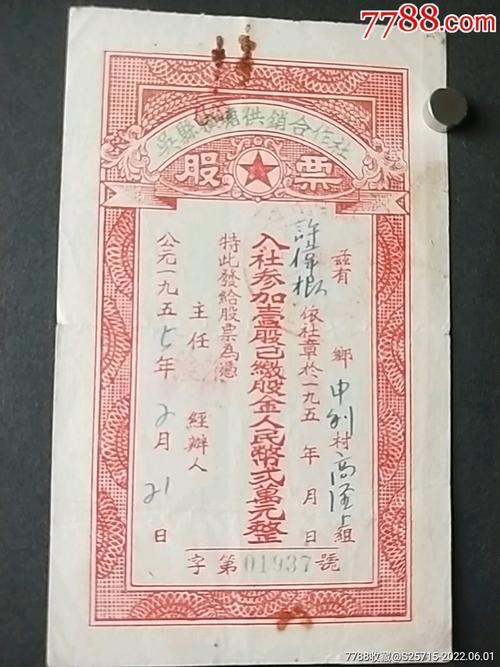 7788.com
吳縣供銷合作社
股票
茲有 鄉申利村高上組
許根 依社章於一九五 年 月 日
入社參加壹股已繳股金人民幣弍萬元整
特此發給股票為憑
主任 經辦人
公元一九五5年2月21日
字第01937號
7788收藏@S25715-2022.06.01